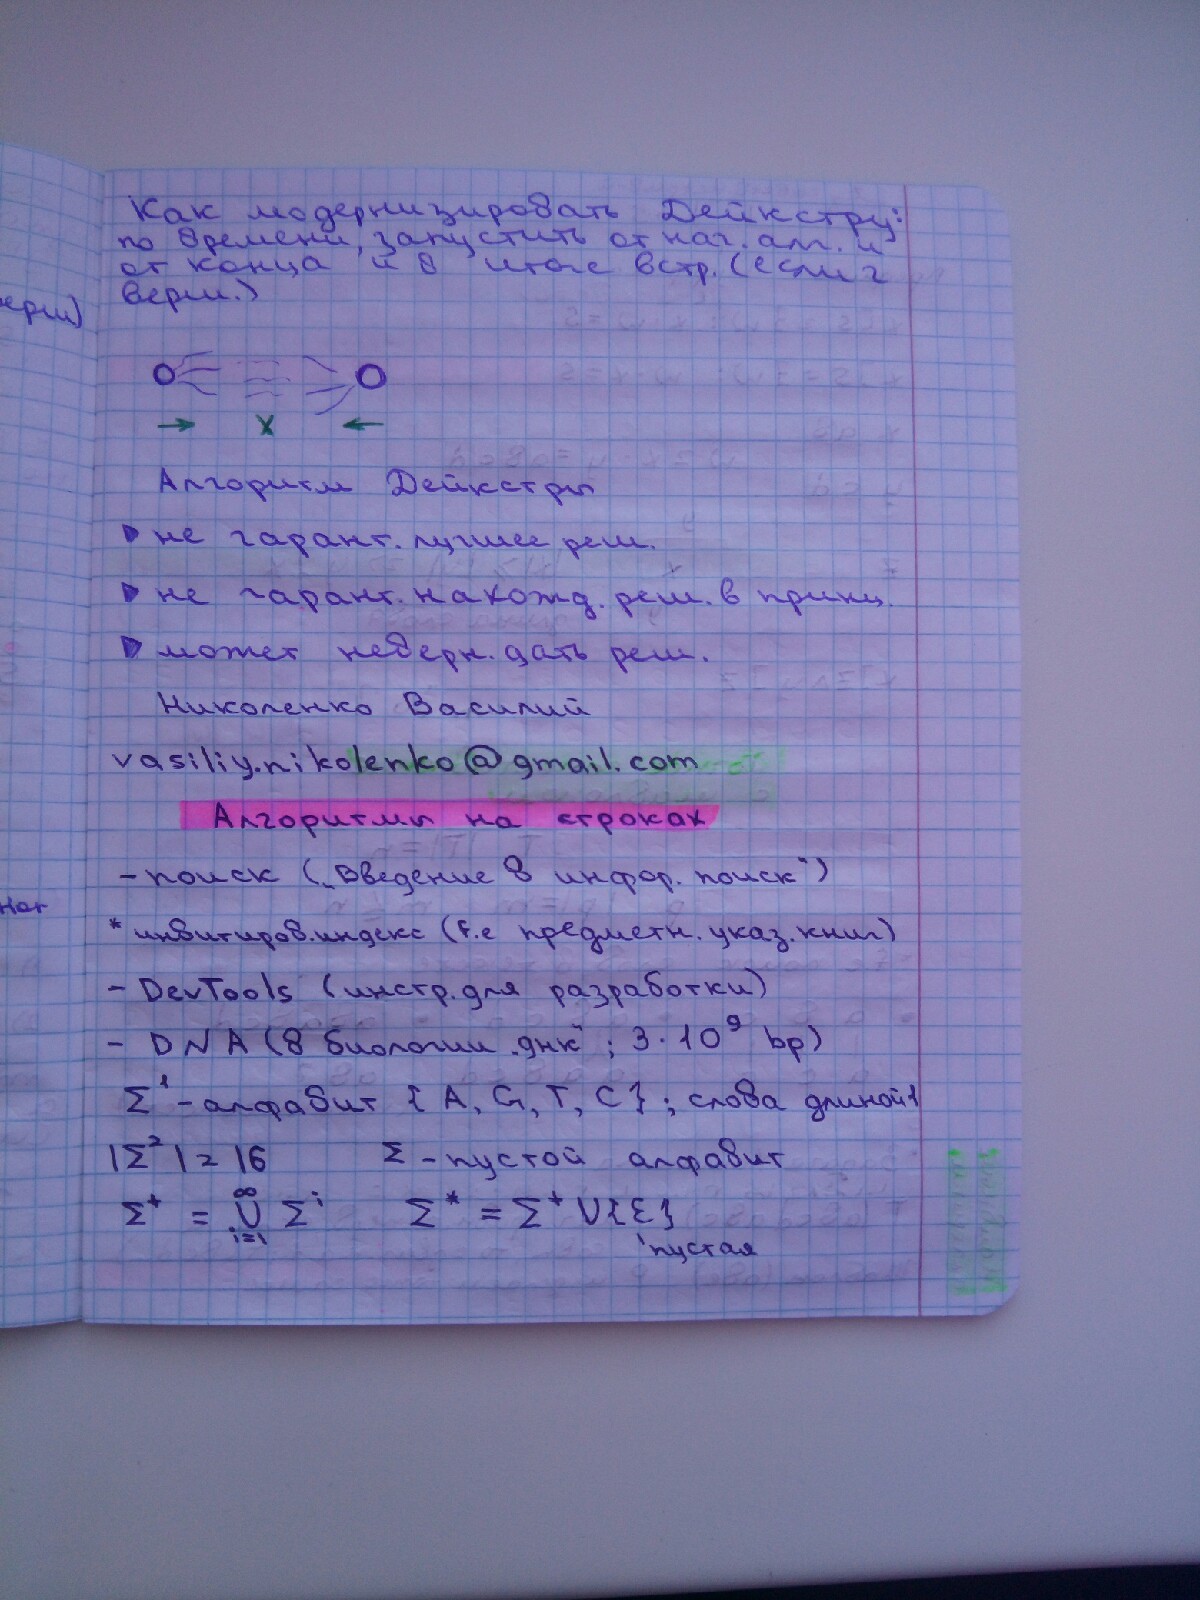 Как модернизировать Дейкстру:
по времени, запустить от нач. алг. и
от конца и в итоге встр. (если 2
верш.)
ерш)
→ X ←
Алгоритм Дейкстры
не гарант. лучшее реш.
не гарант. нахожд. реш. в принц.
может неверн. дать реш.
Николенко Василий
vasiliy.nikolenko@gmail.com
Алгоритмы на строках
- поиск („Введение в инфор. поиск")
* инвитиров. индекс (т.е предметн. указ. книг)
- DevTools (инстр. для разработки)
- DNA (в биологии „днк"; 3·10⁹ bp)
Σ¹ - алфавит {A, G, T, C}; слова длиной 1
|Σ²| = 16 Σ - пустой алфавит
Σ⁺ = ∪ᵢ₌₁^∞ Σⁱ Σ* = Σ⁺ ∪ {ε}
пустая